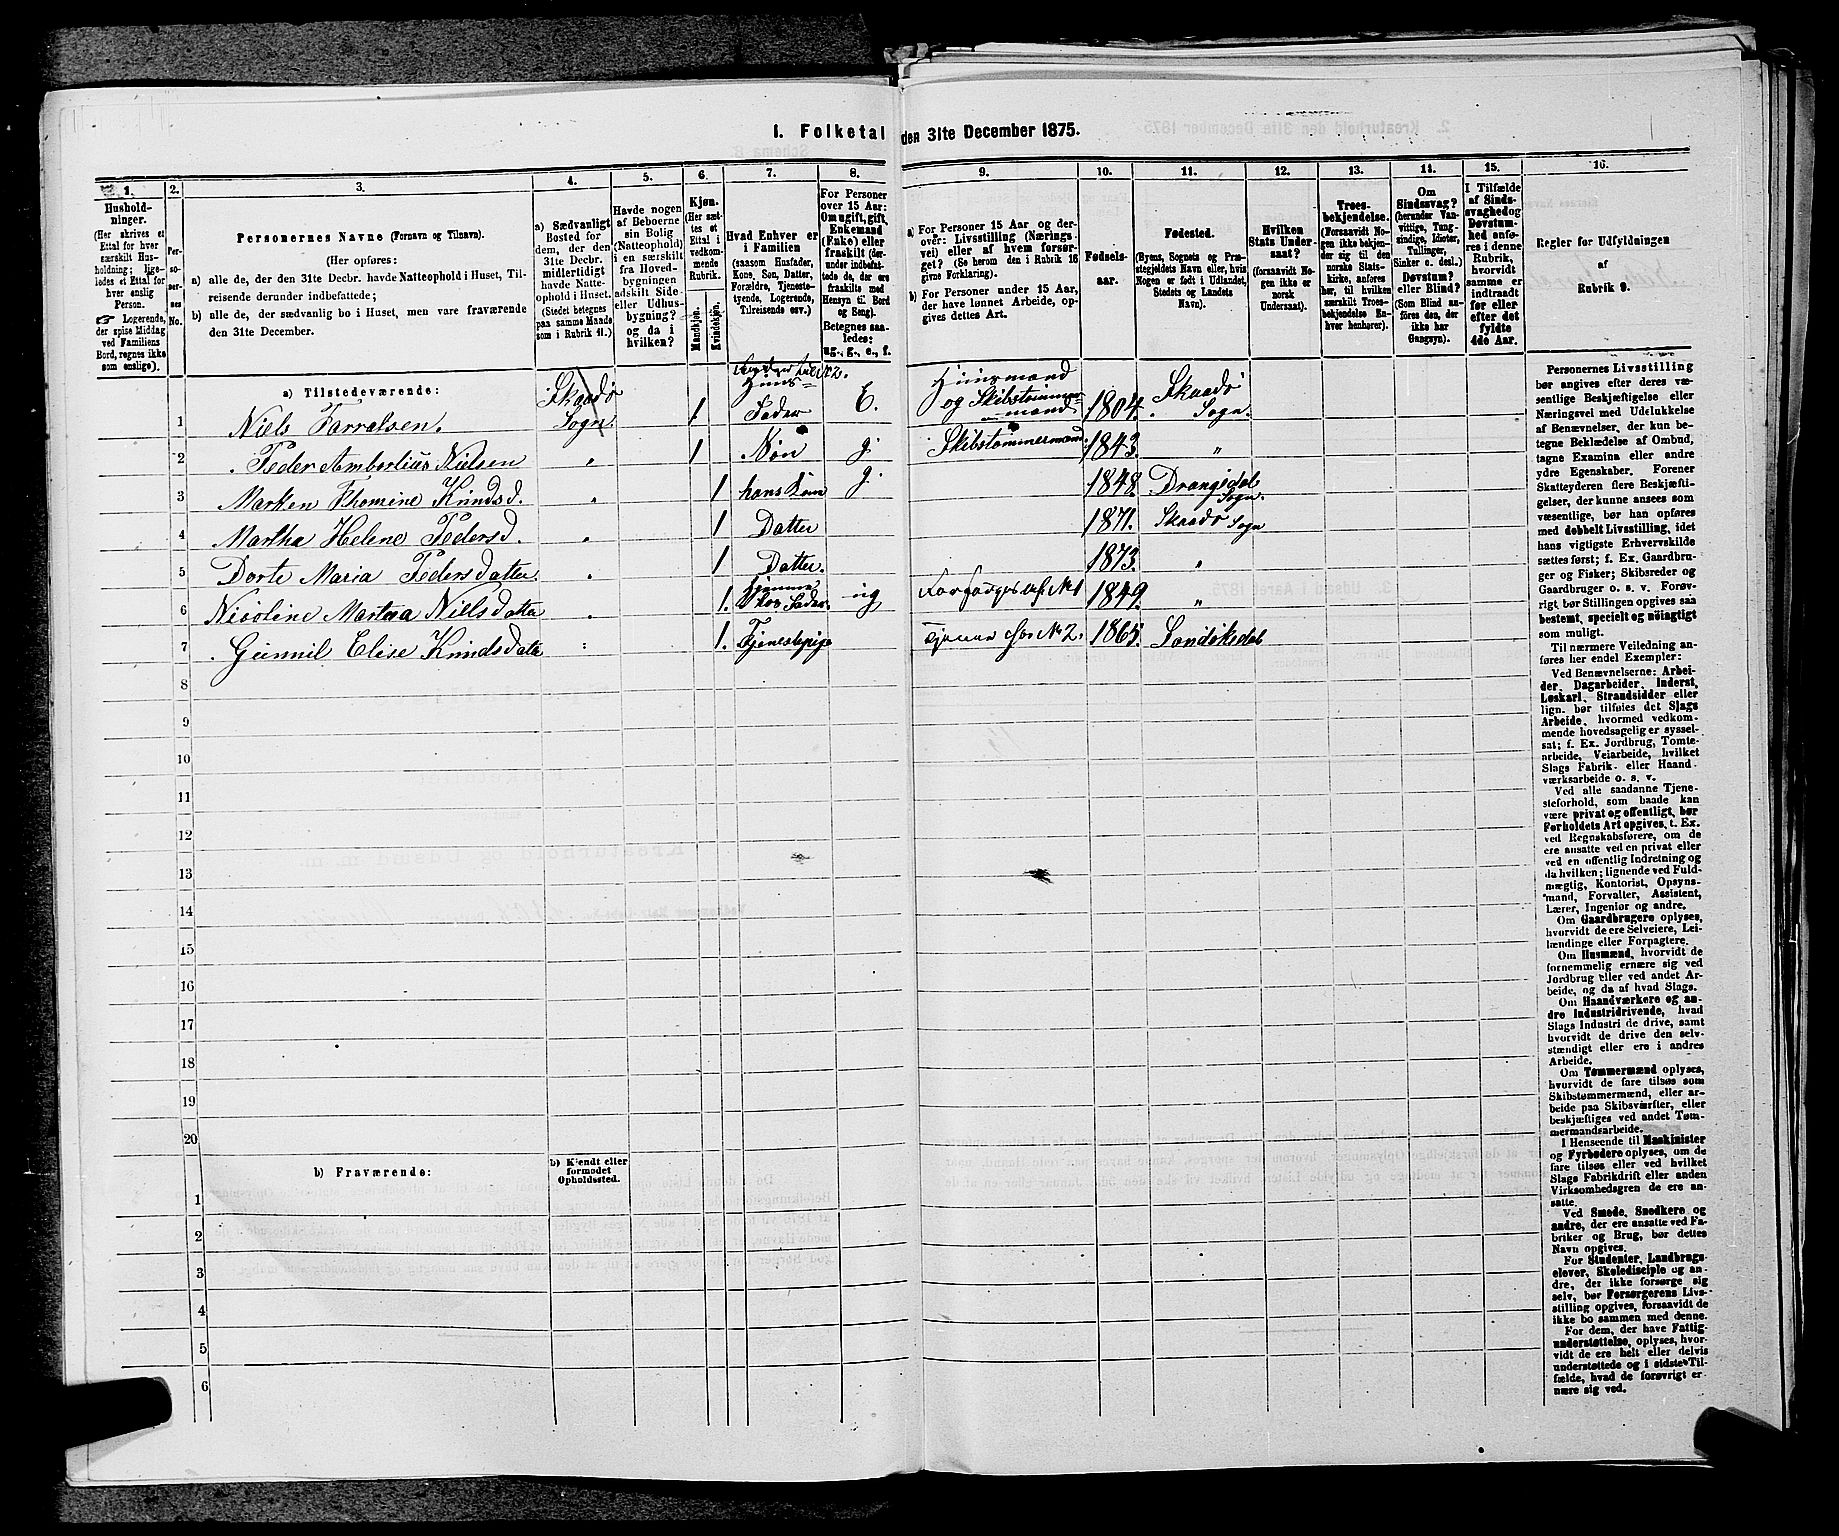 1. Folketal den 31te December 1875.
1.
2.
3.
4.
5.
6.
7.
8.
9.
10.
11.
12.
13.
14.
15.
16.
Hushold-
ninger.
(Her skrives et
Ettal for hver
særskilt Hus-
holdning; lige-
ledes et Ettal for
hver enslig
Person.
☞ Logerende,
der spise Middag
ved Familiens
Bord, regnes ikke
som enslige).
Per-
so-
ner-
nes
No.
Personernes Navne (Fornavn og Tilnavn).
(Her opføres:
a) alle de, der den 31te Decbr. havde Natteophold i Huset, Til-
reisende derunder indbefattede;
b) alle de, der sædvanlig bo i Huset, men vare fraværende
den 31te December.
a) Sædvanligt
Bosted for
dem, der den
31te Decbr.
midlertidigt
havde Natte-
ophold i Huset.
(Stedet betegnes
paa samme Maade
som i Rubrik 11.)
Havde nogen
af Beboerne
sin Bolig
(Natteophold)
i en særskilt
fra Hoved-
bygningen
adskilt Side-
eller Udhus-
bygning?
og da i
hvilken?
Kjøn.
(Her sæt-
tes et
Ettal i
vedkom-
mende
Rubrik.
Mandkjøn.
Kvindekjøn.
Hvad Enhver er
i Familien
(saasom Husfader,
Kone, Søn, Datter,
Forældre, Tjeneste-
tyende, Logerende,
Tilreisende osv.)
For Personer
over 15 Aar:
Om ugift, gift,
Enkemand
(Enke) eller
fraskilt (der-
under indbefat-
tede de, der ere
fraskilte med
Hensyn til Bord
og Seng).
Betegnes saa-
ledes:
ug., g., e., f.
a) For Personer 15 Aar og der-
over: Livsstilling (Nærings-
vei) eller af hvem forsør-
get? (Se herom den i Rubrik 16
givne Forklaring).
b) For Personer under 15 Aar,
der have lønnet Arbeide, op-
gives dettes Art.
Fødsels-
aar.
Fødested.
(Byens, Sognets og Præ-
stegjeldets Navn eller, hvis
Nogen er født i Udlandet,
Stedets og Landets
Navn).
Hvilken
Stats Under-
saat?
(forsaavidt No-
gen ikke er
norsk
Undersaat).
Troes-
bekjendelse.
(Forsaavidt No-
gen ikke bekjen-
der sig til den
norske Stats-
kirke, anføres
her, til hvilken
særskilt Troes-
bekjendelse En-
hver henhører).
Om
Sindssvag?
(herunder Van-
vittige, Tung-
sindige, Idioter,
Tullinger,
Sinker o. desl.)
Døvstum?
eller Blind?
(Som Blind an-
føres den, der
ikke har
Gangsyn).
I Tilfælde
af Sinds-
svaghed og
Døvstum-
hed anfø-
res i denne
Rubrik,
hvorvidt
samme er
indtraadt
før eller
efter det
fyldte
4de Aar.
Regler for Udfyldningen
af
Rubrik 9.
a) Tilstedeværende:
1 Niels Tarralsen. Skaadø Sogn 1 Huus- Fader E. Huusmand og Skibstømmer-mand 1804. Skaadø Sogn.
2 Peder Ambortius Nielsen " 1 Søn g Skibstømmermand. 1843. "
3 Marken Thomine Knudsd. " 1 hans Kone g. 1848. Drangedal Sogn.
4 Martha Helene Pedersd. " 1 Datter 1871. Skaadø Sogn
5 Dorte Maria Pedersdatter. " 1 Datter. 1873. "
6 Nicoline Martha Nielsdatter " 1. hos Fader ug Forsørges af No 1 1849. "
7 Gunnil Elise Knudsdatr : 1. Tjenestepige Tjener hos No 2. 1865. Sandøkedal
8
9
10
11
12
13
14
15
16
17
18
19
20
b) Fraværende:
b) Kjendt eller
formodet
Opholdssted.
1
2
3
4
5
6
Personernes Livsstilling
bør angives efter deres væ-
sentlige Beskjæftigelse eller
Næringsvei med Udelukkelse
af Benævnelser, der kun be-
tegne Beklædelse af Ombud,
tagne Examina eller andre
ydre Egenskaber. Forener
Skatteyderen flere Beskjæfti-
gelser, der kunne ansees som
væsentlige, bør han opføres
med dobbelt Livsstilling, idet
hans vigtigste Erhvervskilde
sættes først; f. Ex. Gaardbru-
ger og Fisker; Skibsreder og
Gaardbruger o. s. v. Forøv-
rigt bør Stillingen opgives saa
bestemt, specielt og nøiagtigt
som muligt.
Til nærmere Veiledning an-
føres her endel Exempler:
Ved Benævnelserne: Arbei-
der, Dagarbeider, Inderst,
Løskarl, Strandsidder eller
lign. bør tilføies det Slags
Arbeide, hvormed vedkom-
mende hovedsagelig er syssel-
sat; f. Ex. Jordbrug, Tomte-
arbeide, Veiarbeide, hvilket
Slags Fabrik- eller Haand-
værksarbeide o. s. v.
Ved alle saadanne Tjene-
steforhold, som baade kan
være privat og offentligt, bør
Forholdets Art opgives, t. Ex.
ved Regnskabsførere, om de
ere ansatte ved en privat eller
ved en offentlig Indretning og
da hvilken; lignende ved Fuld-
mægtig, Kontorist, Opsyns-
mand, Forvalter, Assistent,
Lærer, Ingeniør og andre.
Om Gaardbrugere oplyses,
hvorvidt de ere Selveiere, Lei-
lændinge eller Forpagtere.
Om Husmænd, hvorvidt de
fornemmelig ernære sig ved
Jordbrug eller ved andet Ar-
beide, og da af hvad Slags.
Om Haandværkere og an-
dre Industridrivende, hvad
Slags Industri de drive, samt
hvorvidt de drive den selv-
stændigt eller ere i andres
Arbeide.
Om Tømmermænd oplyses,
hvorvidt de fare tilsøs som
Skibstømmermænd, eller ar-
beide paa Skibsværfter, eller
beskjæftiges ved andet Tøm-
mermandsarbeide.
I Henseende til Maskinister
og Fyrbødere oplyses, om de
fare tilsøs eller ved hvilket
Slags Fabrikdrift eller anden
Virksomhedsgren de ere an-
satte.
Ved Smede, Snedkere og
andre, der ere ansatte ved Fa-
briker og Brug, bør dettes
Navn opgives.
For Studenter, Landbrugs-
elever, Skoledisciple og an-
dre, der ikke forsørge sig
selv, bør Forsørgerens Livs-
stilling opgives, forsaavidt de
ikke bo sammen med denne.
For dem, der have Fattig-
understøttelse, oplyses, hvor-
vidt de ere helt eller delvis
understøttede og i sidste Til-
fælde, hvad de forøvrigt er-
nære sig ved.